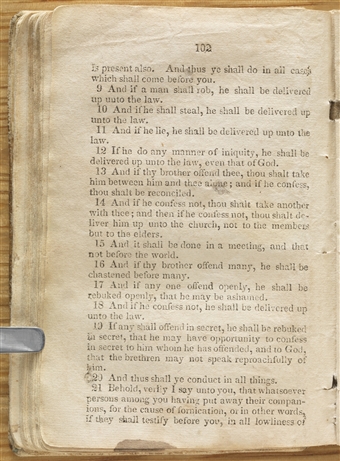 102
is present also. And thus ye shall do in all cases
which shall come before you.
9 And if a man shall rob, he shall be delivered
up unto the law.
10 And if he shall steal, he shall be delivered up
unto the law.
11 And if he lie, he shall be delivered up unto the
law.
12 If he do any manner of iniquity, he shall be
delivered up unto the law, even that of God.
13 And if thy brother offend thee, thou shalt take
him between him and thee alone; and if he confess,
thou shalt be reconciled.
14 And if he confess not, thou shalt take another
with thee; and then if he confess not, thou shalt de-
liver him up unto the church, not to the members
but to the elders.
15 And it shall be done in a meeting, and that
not before the world.
16 And if thy brother offend many, he shall be
chastened before many.
17 And if any one offend openly, he shall be
rebuked openly, that he may be ashamed.
18 And if he confess not, he shall be delivered up
unto the law.
19 If any shall offend in secret, he shall be rebuked
in secret, that he may have opportunity to confess
in secret to him whom he has offended, and to God,
that the brethren may not speak reproachfully of
him.
20 And thus shall ye conduct in all things.
21 Behold, verily I say unto you, that whatsoever
persons among you having put away their compan-
ions, for the cause of fornication, or in other words,
if they shall testify before you, in all lowliness of